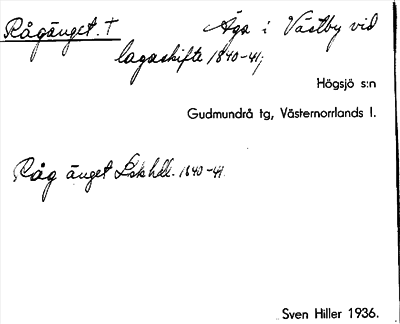 Rågänget. † Äga i Västby vid
lagaskifte 1840-41;
Högsjö s:n
Gudmundrå tg, Västernorrlands l.
Råg änget Lskhdl. 1840-41.
Sven Hiller 1936.